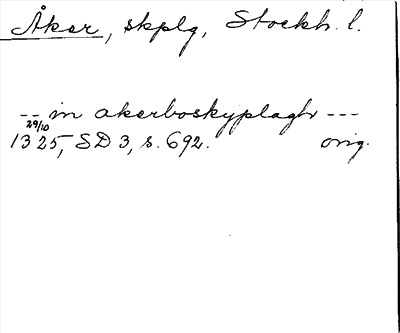 Åker, skplg, Stockh. l.
-- in akerboskyplaghr ---
29/10
1325, SD 3, s. 692. orig.